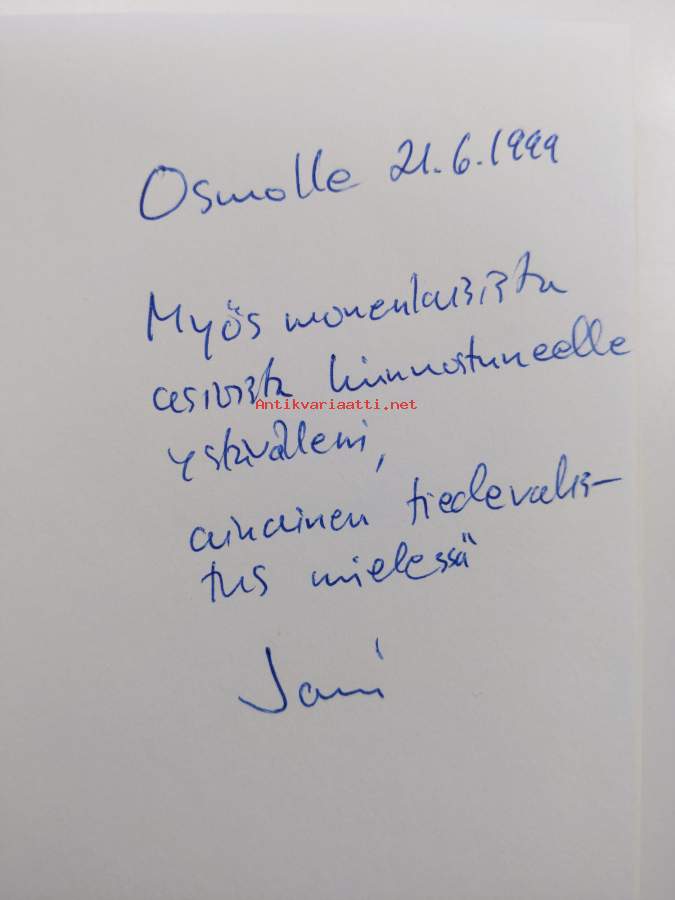 Osmolle 21.6.1999
Myös monenlaisista
asioista kiinnostuneelle
Antikvariaatti.net
ystävälleni,
ainainen tiedevalis-
tus mielessä